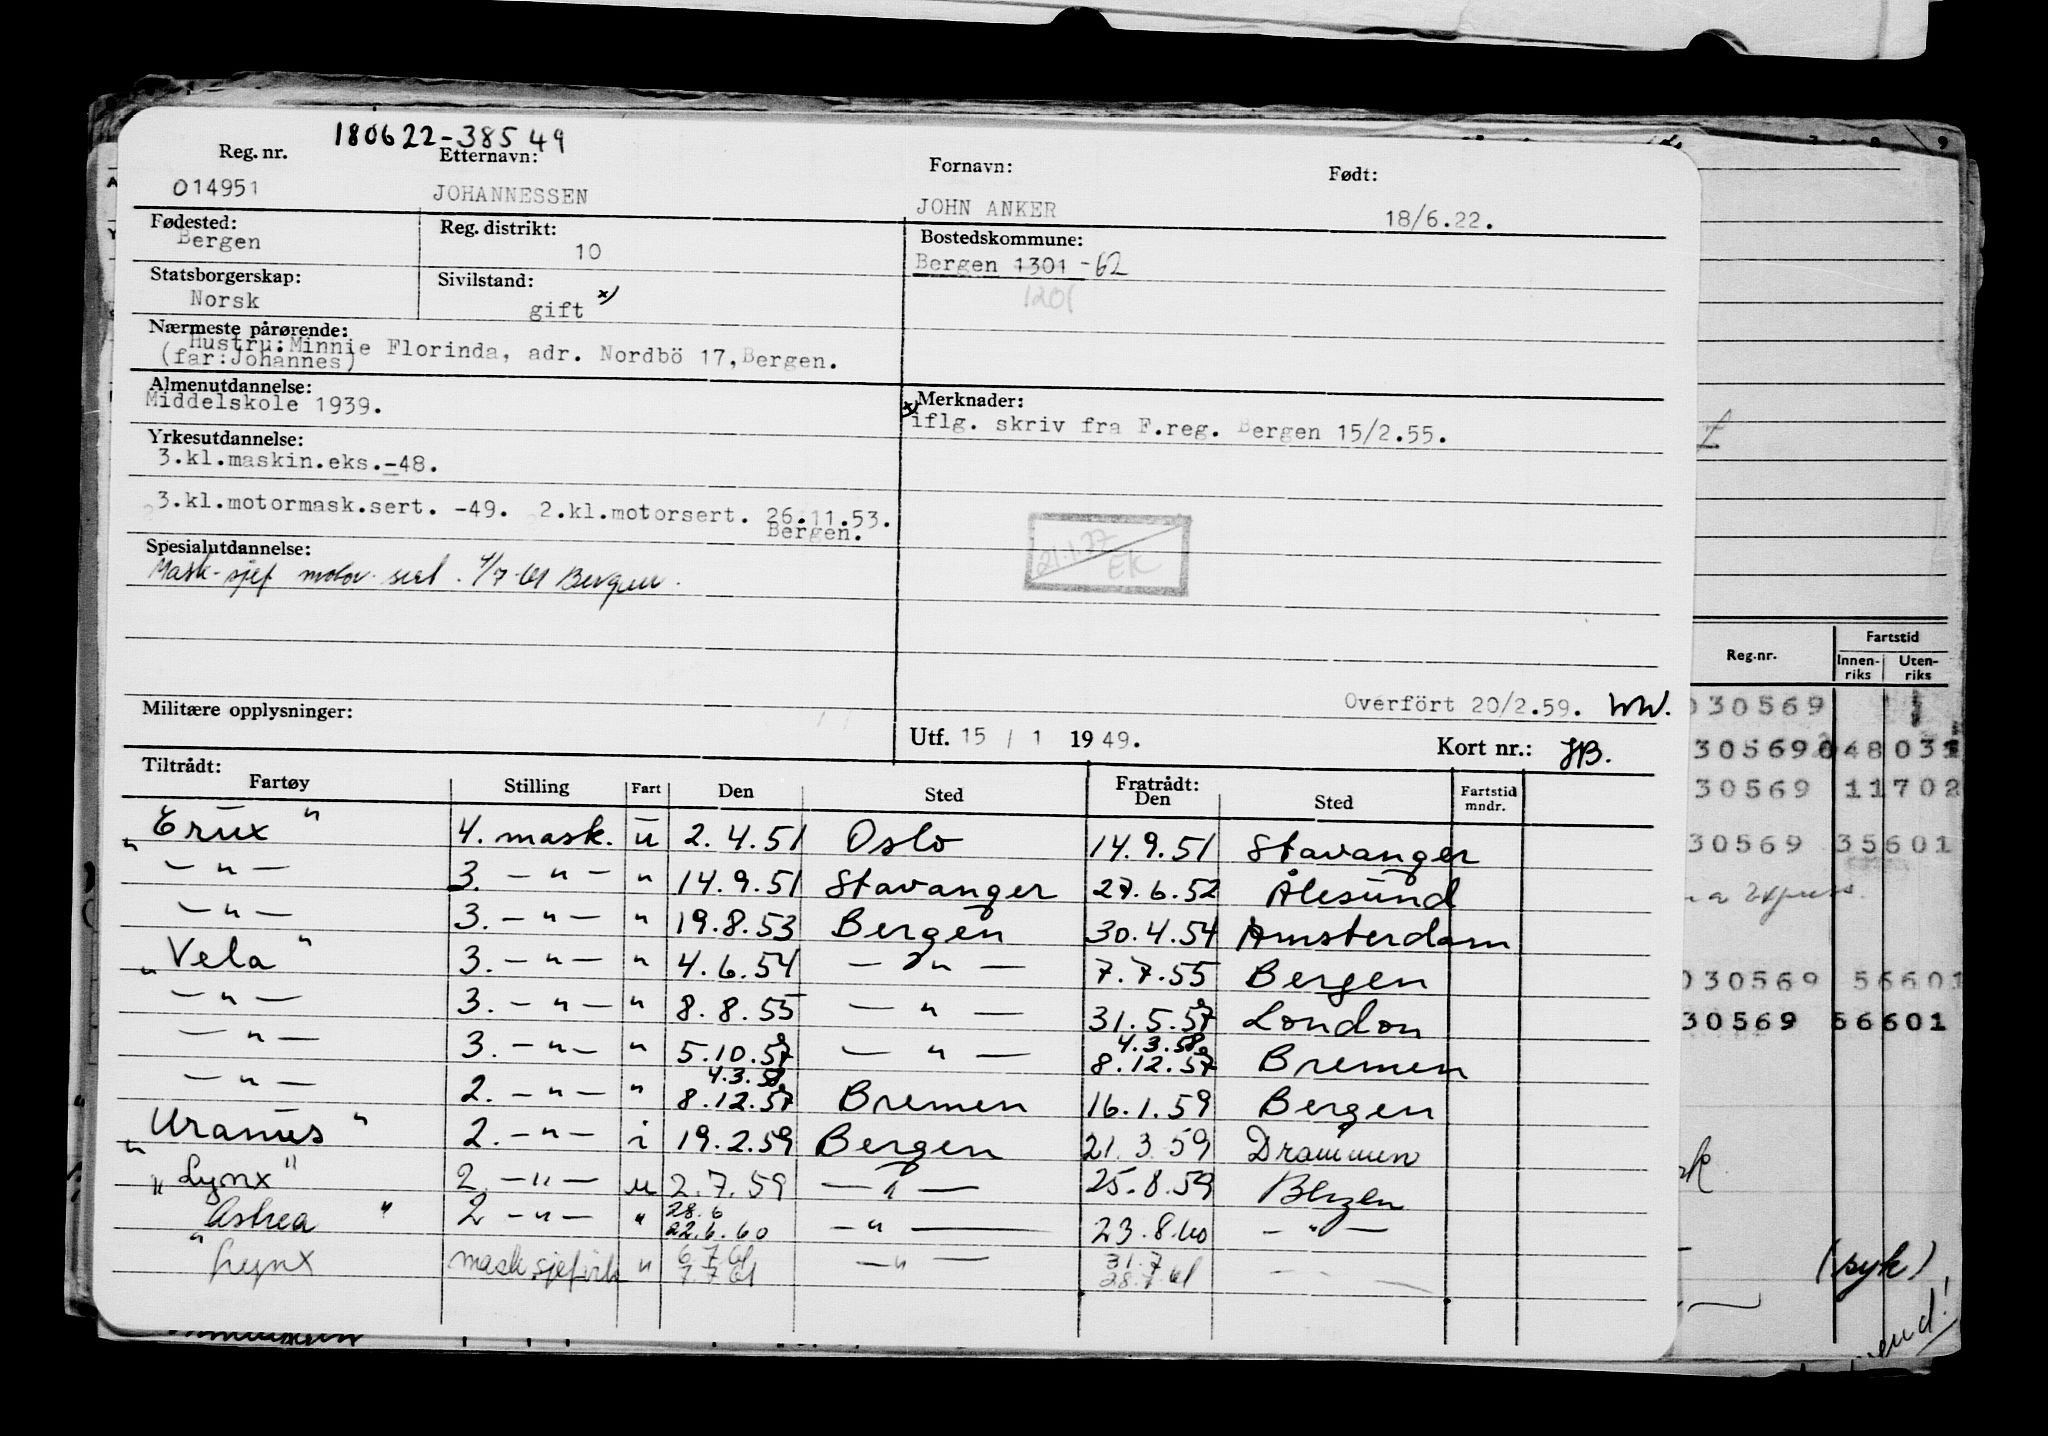 180622-38549
Reg. nr. Etternavn: Fornavn: Født:
014951 JOHANNESSEN JOHN ANKER 18/6.22.
Fødested: Reg. distrikt: Bostedskommune:
Bergen 10 Bergen 1301 -62
1201
Statsborgerskap: Sivilstand:
Norsk gift x)
Nærmeste pårørende:
Hustru: Minnie Florinda, adr. Nordbö 17, Bergen.
(far: Johannes)
Almenutdannelse: Merknader:
Middelskole 1939. x) iflg. skriv fra F.reg. Bergen 15/2.55.
Yrkesutdannelse:
3.kl.maskin.eks.-48.
3.kl.motormask.sert. -49. 2.kl.motorsert. 26.11.53.
Bergen.
21.1.77
EK
Spesialutdannelse:
Mask-sjef motor sert. 4/7-61 Bergen.
Overfört 20/2.59. WW.
Militære opplysninger: Utf. 15 / 1 1949. Kort nr.: HB.
Tiltrådt: Fratrådt:
Fartøy Stilling Fart Den Sted Den Sted Fartstid mndr.
"Crux" 4. mask. u 2.4.51 Oslo 14.9.51 Stavanger
— " — 3. — " — " 14.9.51 Stavanger 27.6.52 Ålesund
— " — 3. — " — " 19.8.53 Bergen 30.4.54 Amsterdam
"Vela" 3. — " — " 4.6.54 — " — 7.7.55 Bergen
— " — 3. — " — " 8.8.55 — " — 31.5.57 London
— " — 3. — " — " 5.10.57 — " — 4.3.58 8.12.57 Bremen
— " — 2. — " — " 4.3.58 8.12.57 Bremen 16.1.59 Bergen
"Uranus" 2. — " — i 19.2.59 Bergen 21.3.59 Drammen
"Lynx" 2. — " — u 2.7.59 — " — 25.8.59 Bergen
"Astrea" 2 — " — " 28.6 22.6.60 — " — 23.8.60 — " —
Lynx mask.sjef " 6.7.61 7.7.61 — " — 31.7 28.7.61
Reg.nr. Fartstid
Innen-riks Uten-riks
030569
30569 048031
30569 11702
30569 35601
030569 56601
30569 56601
(syk)